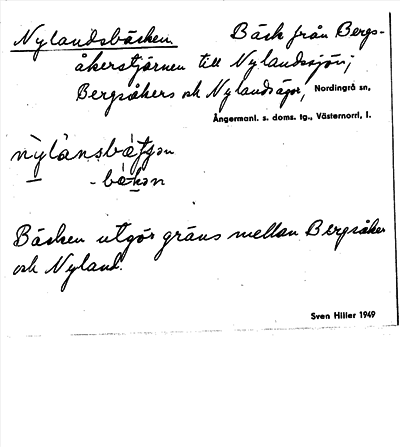 Nylandsbäcken Bäck från Bergs-
åkerstjärnen till Nylandssjön;
Bergsåkers och Nylandsägor, Nordingrå sn,
Ångermanl. s. doms. tg., Västernorrl, l.
nỳlànsbætʃən
- bækən
Bäcken utgör gräns mellan Bergsåker
och Nyland.
Sven Hiller 1949